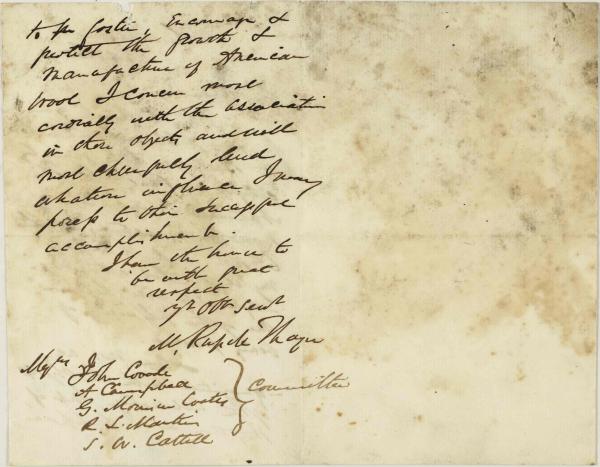 to foster, Encourage &
protect the growth &
manufacture of American
wool I concur most
cordially with the association
in those objects and will
most cheerfully lend
whatever influence I may
possess to their successful
accomplishment.
I have the honor to
be with great
respect
yr Obt Sevt
M. Russell Thayer
Messrs John
A Campbell
G. Morrison Coates
R. L. Martin
S. W. Cattell
Committee